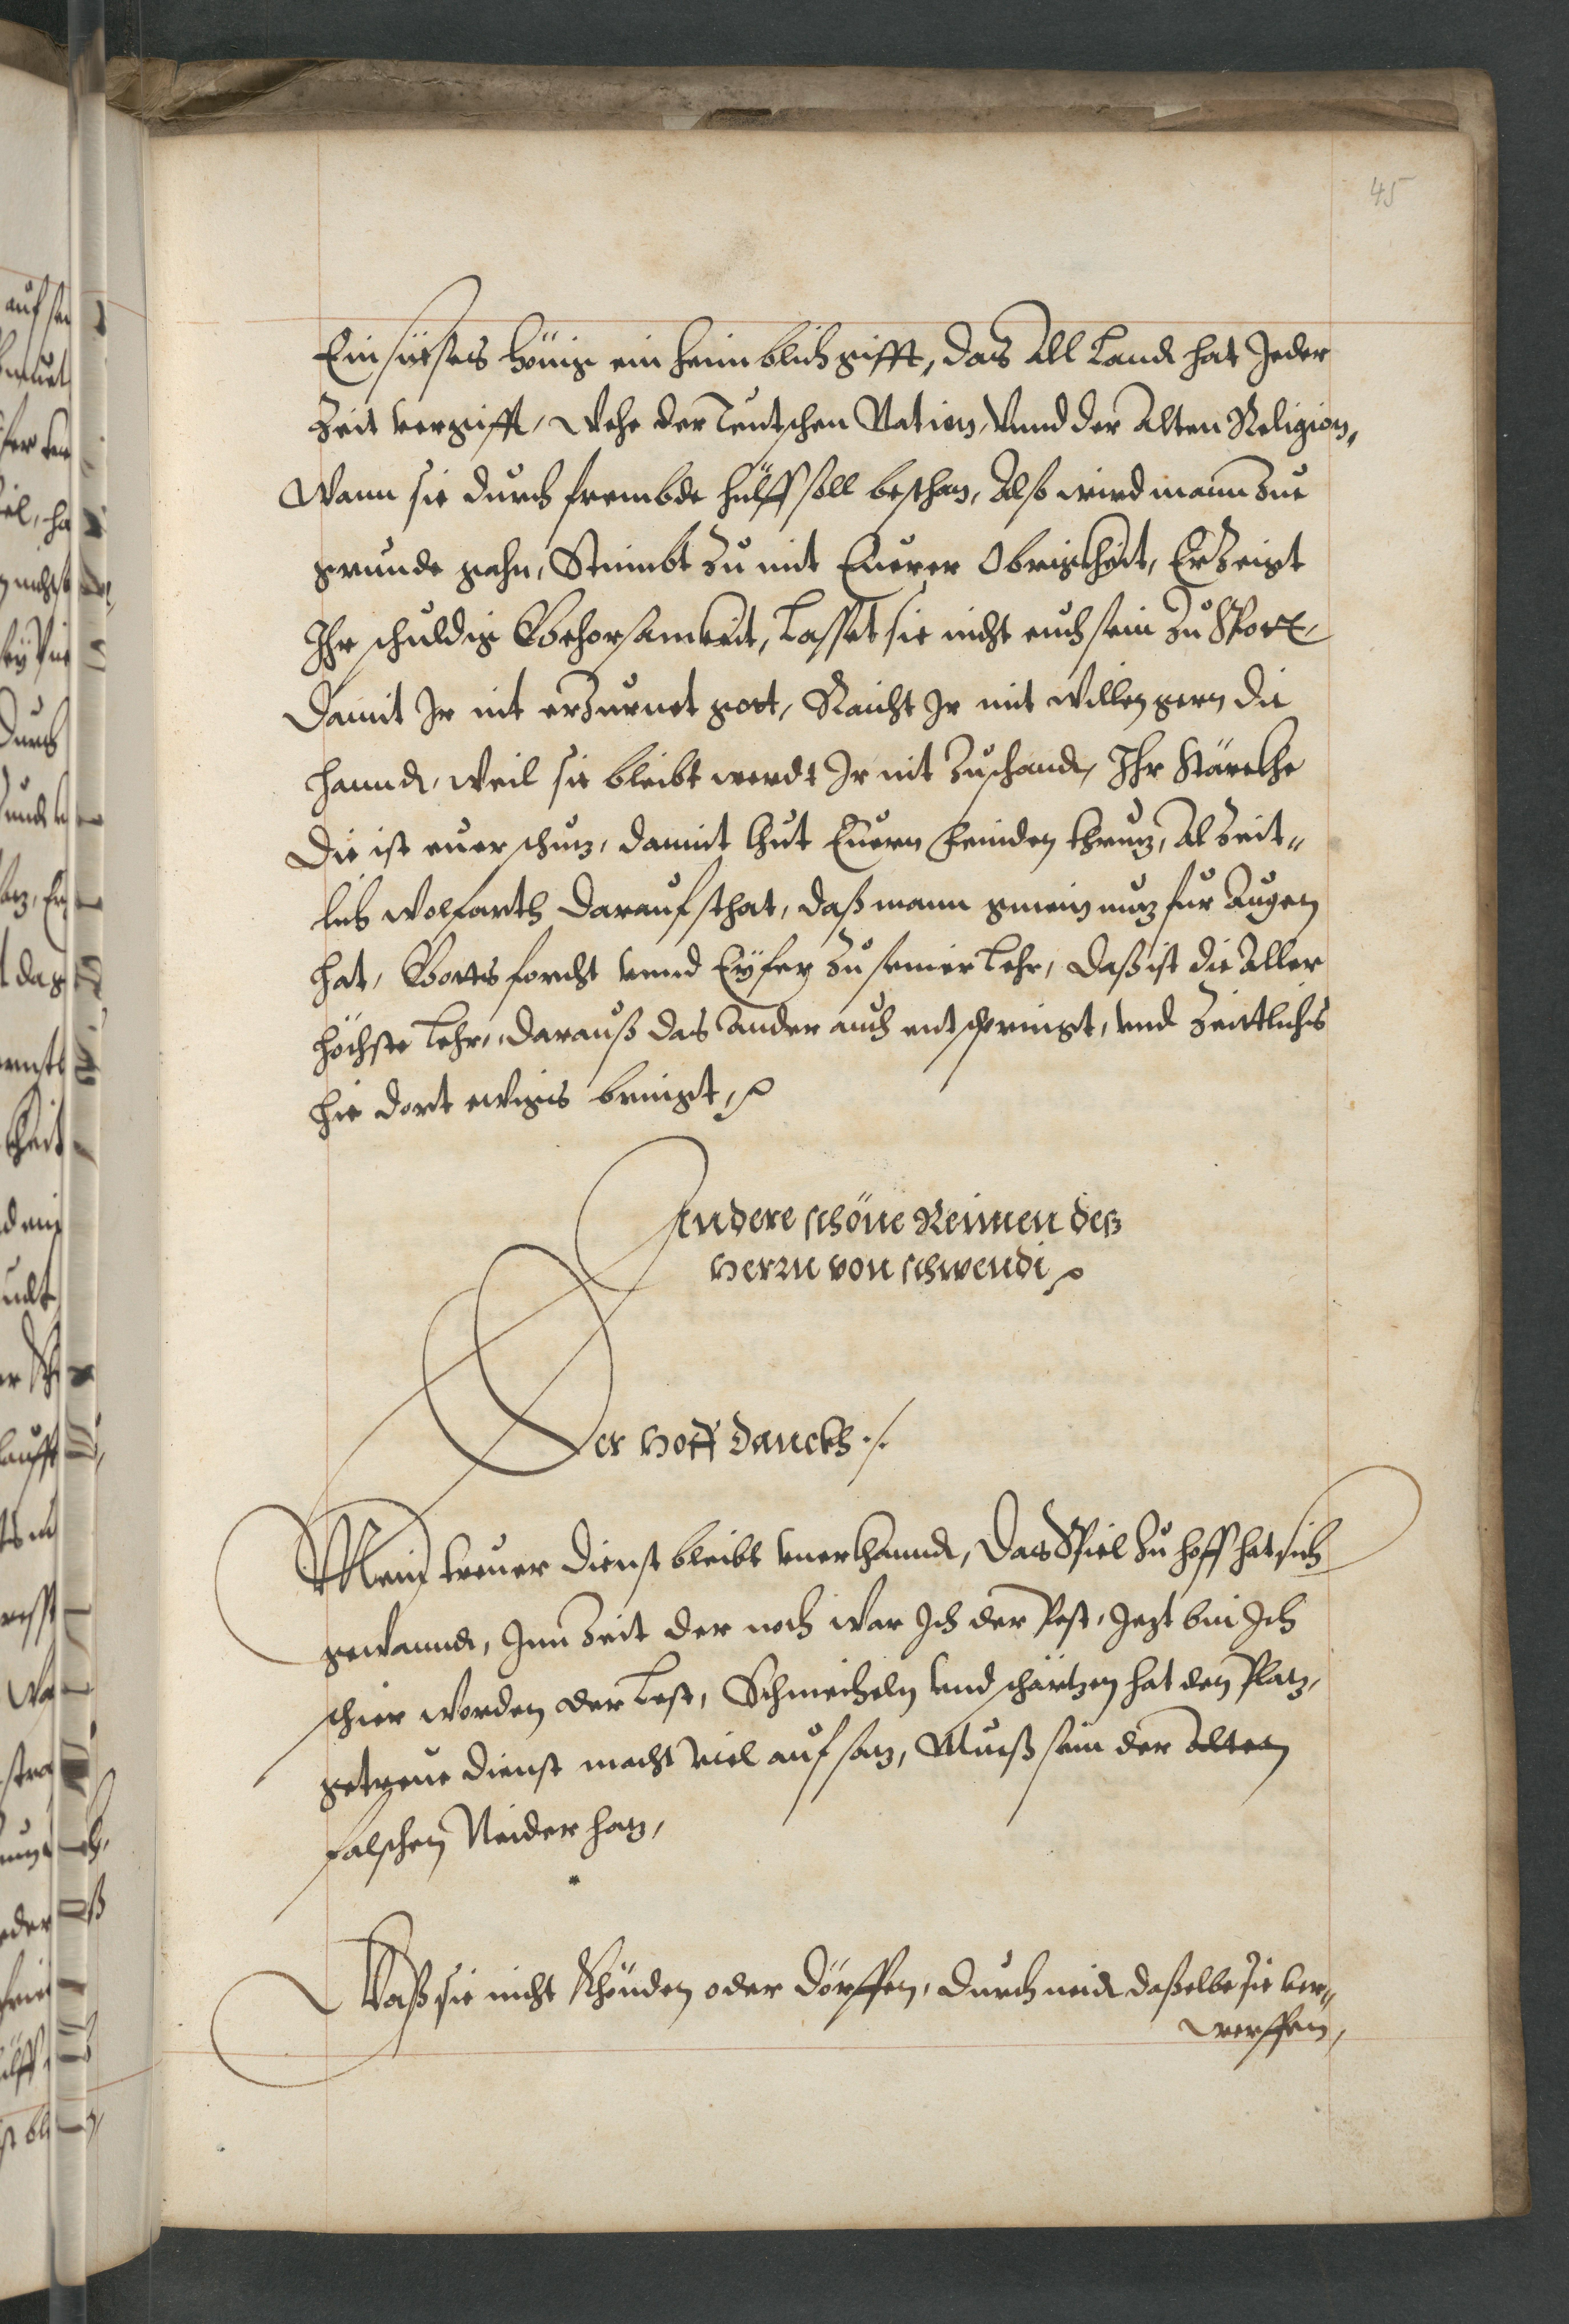 45
Ein süeses hönig ein heimblich gifft, das All Lannd hat Jeder
Zeit vergifft, Wehe der Teutschen Nation, Vnnd der Alten Religion,
Wann sie durch frembde hülff soll bestehan, Also wird mann zue
grunde gahn, Stimbt zu mit Euerer Obrigkheit, Erzeigt
Ihr schuldig Gehorsamkeit, Lasset sie nicht euch sein zu Spott,
Damit Ir nit erzurnet gott, Raicht Ir mit willen gern die
hannd, weil sie bleibt werdt Ir nit zuschand, Ihr Stärckhe
Die ist euer schuz, damit thut Euern feinden thruz, Al Zeit„
lich wolfarth darauf sthat, daß mann gmein nuz fur Augen
hat, Gotts forcht vnnd Eyfer zu seiner Lehr, daß ist die Aller
höchste Lehr, darauß das Ander auch entspringt, vnd Zeittlichs
hie dort ewigs bringt,
Andere schöne Reimen deß
Herrn von schwendi
Der Hoff danckh ./.
Mein treuer dienst bleibt vnerkhannd, Das Spiel zu hoff hat sich
gewannd, Inn Zeit der noth war Ich der Pest, Jezt bin Ich
schier worden der Lest, Schmeicheln vnd schärtzen hat den Platz,
getreue dienst macht viel aufsaz, Muß sein der Alten
falschen Neider haz,
Waß sie nicht khönden oder dörffen, durch neid daßelbe sie ver„
werffen,